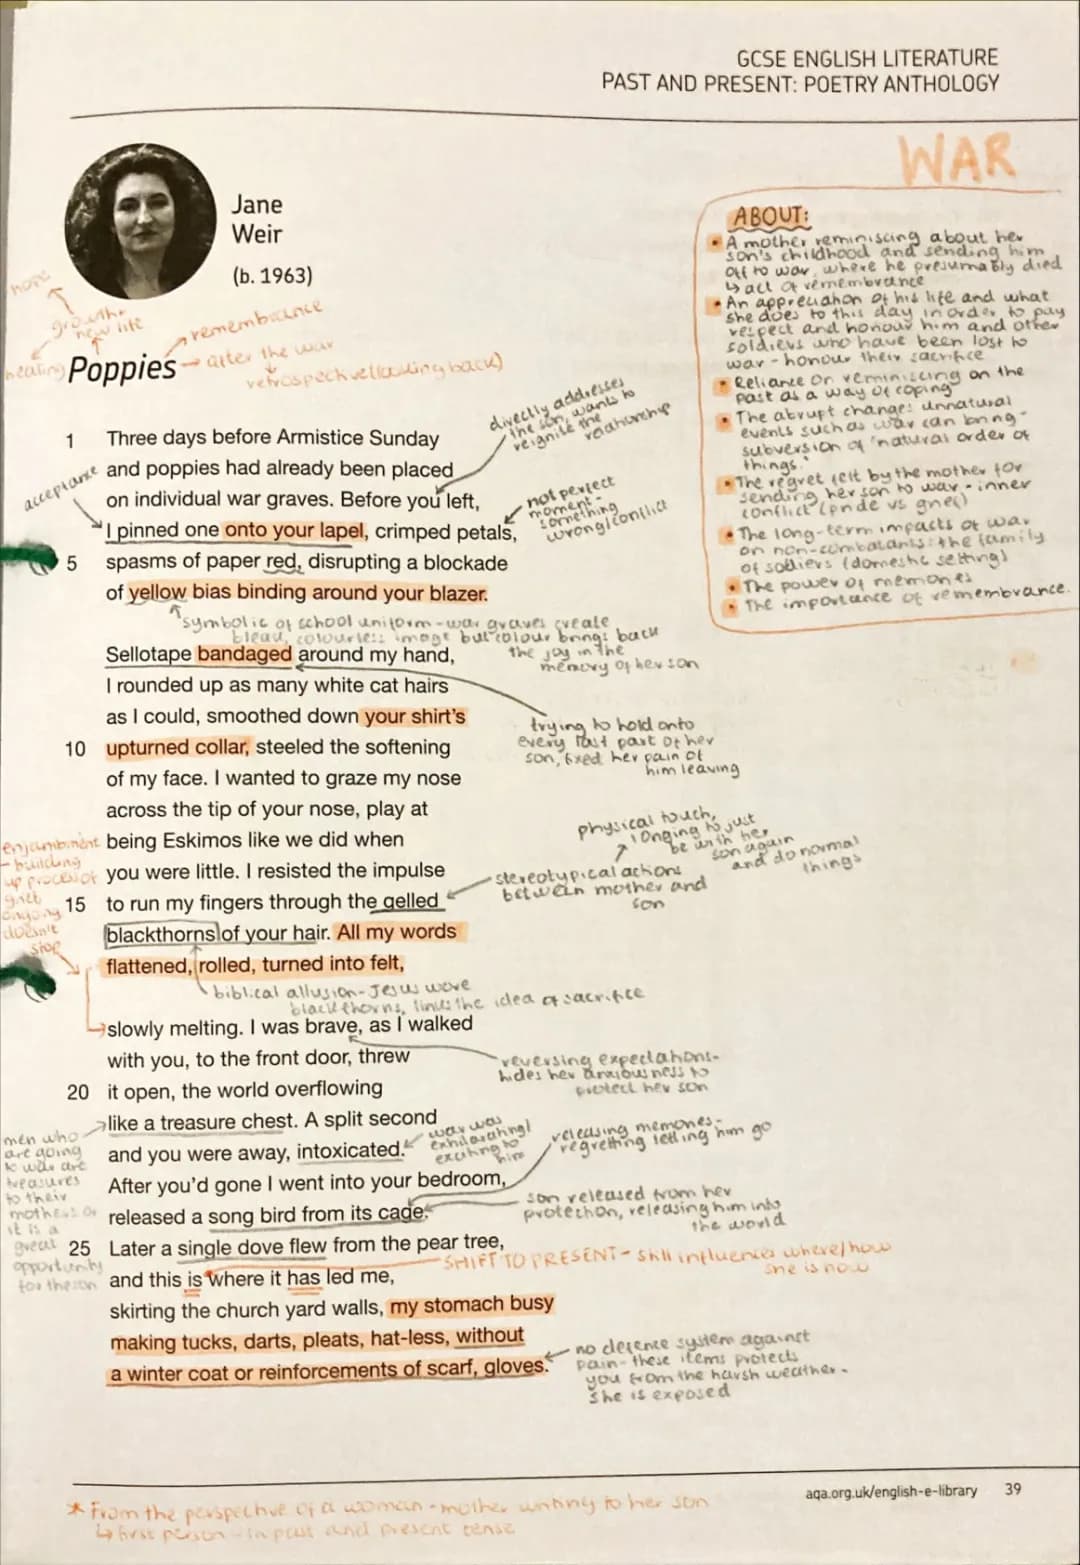 GCSE ENGLISH LITERATURE
PAST AND PRESENT: POETRY ANTHOLOGY
WAR
Jane
Weir
(b. 1963)
ABOUT:
• A mother reminiscing about her
son's childhood and sending him
off to war, where he presumably died
↳ act of remembrance
• An appreciation of his life and what
she does to this day in order to pay
respect and honour him and other
soldiers who have been lost to
war - honour their sacrifice
• Reliance on reminiscing on the
past as a way of coping
• The abrupt change: unnatural
events such as war can bring -
subversion of 'natural order of
things.'
• The regret felt by the mother for
sending her son to war - inner
conflict (pride vs grief)
• The long-term impacts of war
on non-combatants: the family
of soldiers (domestic setting)
• The power of memories
• The importance of remembrance.
hope
growth +
new life
healing
Poppies
→ remembrance
→ after the war
retrospective (looking back)
directly addresses
the son, wants to
reignite the
relationship
acceptance
1 Three days before Armistice Sunday
and poppies had already been placed
on individual war graves. Before you left,
I pinned one onto your lapel, crimped petals,
5 spasms of paper red, disrupting a blockade
of yellow bias binding around your blazer.
not perfect
moment -
something
wrong/conflict
symbolic of school uniform - war graves create
bleak, colourless image but colour brings back
the joy in the
memory of her son
Sellotape bandaged around my hand,
I rounded up as many white cat hairs
as I could, smoothed down your shirt's
10 upturned collar, steeled the softening
of my face. I wanted to graze my nose
across the tip of your nose, play at
being Eskimos like we did when
you were little. I resisted the impulse
15 to run my fingers through the gelled
blackthorns of your hair. All my words
flattened, rolled, turned into felt,
trying to hold onto
every last part of her
son, fixed her pain of
him leaving
physical touch,
longing to just
be with her
son again
and do normal
things
stereotypical actions
between mother and
son
enjambment
- building
up process of
grief
ongoing
doesn't
stop
biblical allusion - Jesus wore
blackthorns, links the idea of sacrifice
slowly melting. I was brave, as I walked
with you, to the front door, threw
20 it open, the world overflowing
like a treasure chest. A split second
and you were away, intoxicated.
After you'd gone I went into your bedroom,
released a song bird from its cage.
25 Later a single dove flew from the pear tree,
and this is where it has led me,
skirting the church yard walls, my stomach busy
making tucks, darts, pleats, hat-less, without
a winter coat or reinforcements of scarf, gloves.
reversing expectations -
hides her anxiousness to
protect her son
men who
are going
to war are
treasures
to their
mothers or
it is a
great
opportunity
for the son
war was
exhilarating/
exciting to
him
releasing memories -
regretting letting him go
son released from her
protection, releasing him into
the world
SHIFT TO PRESENT - still influences where/how
she is now
no defence system against
pain - these items protects
you from the harsh weather -
she is exposed
aqa.org.uk/english-e-library 39
* From the perspective of a woman - mother writing to her son
↳ first person - in past and present tense